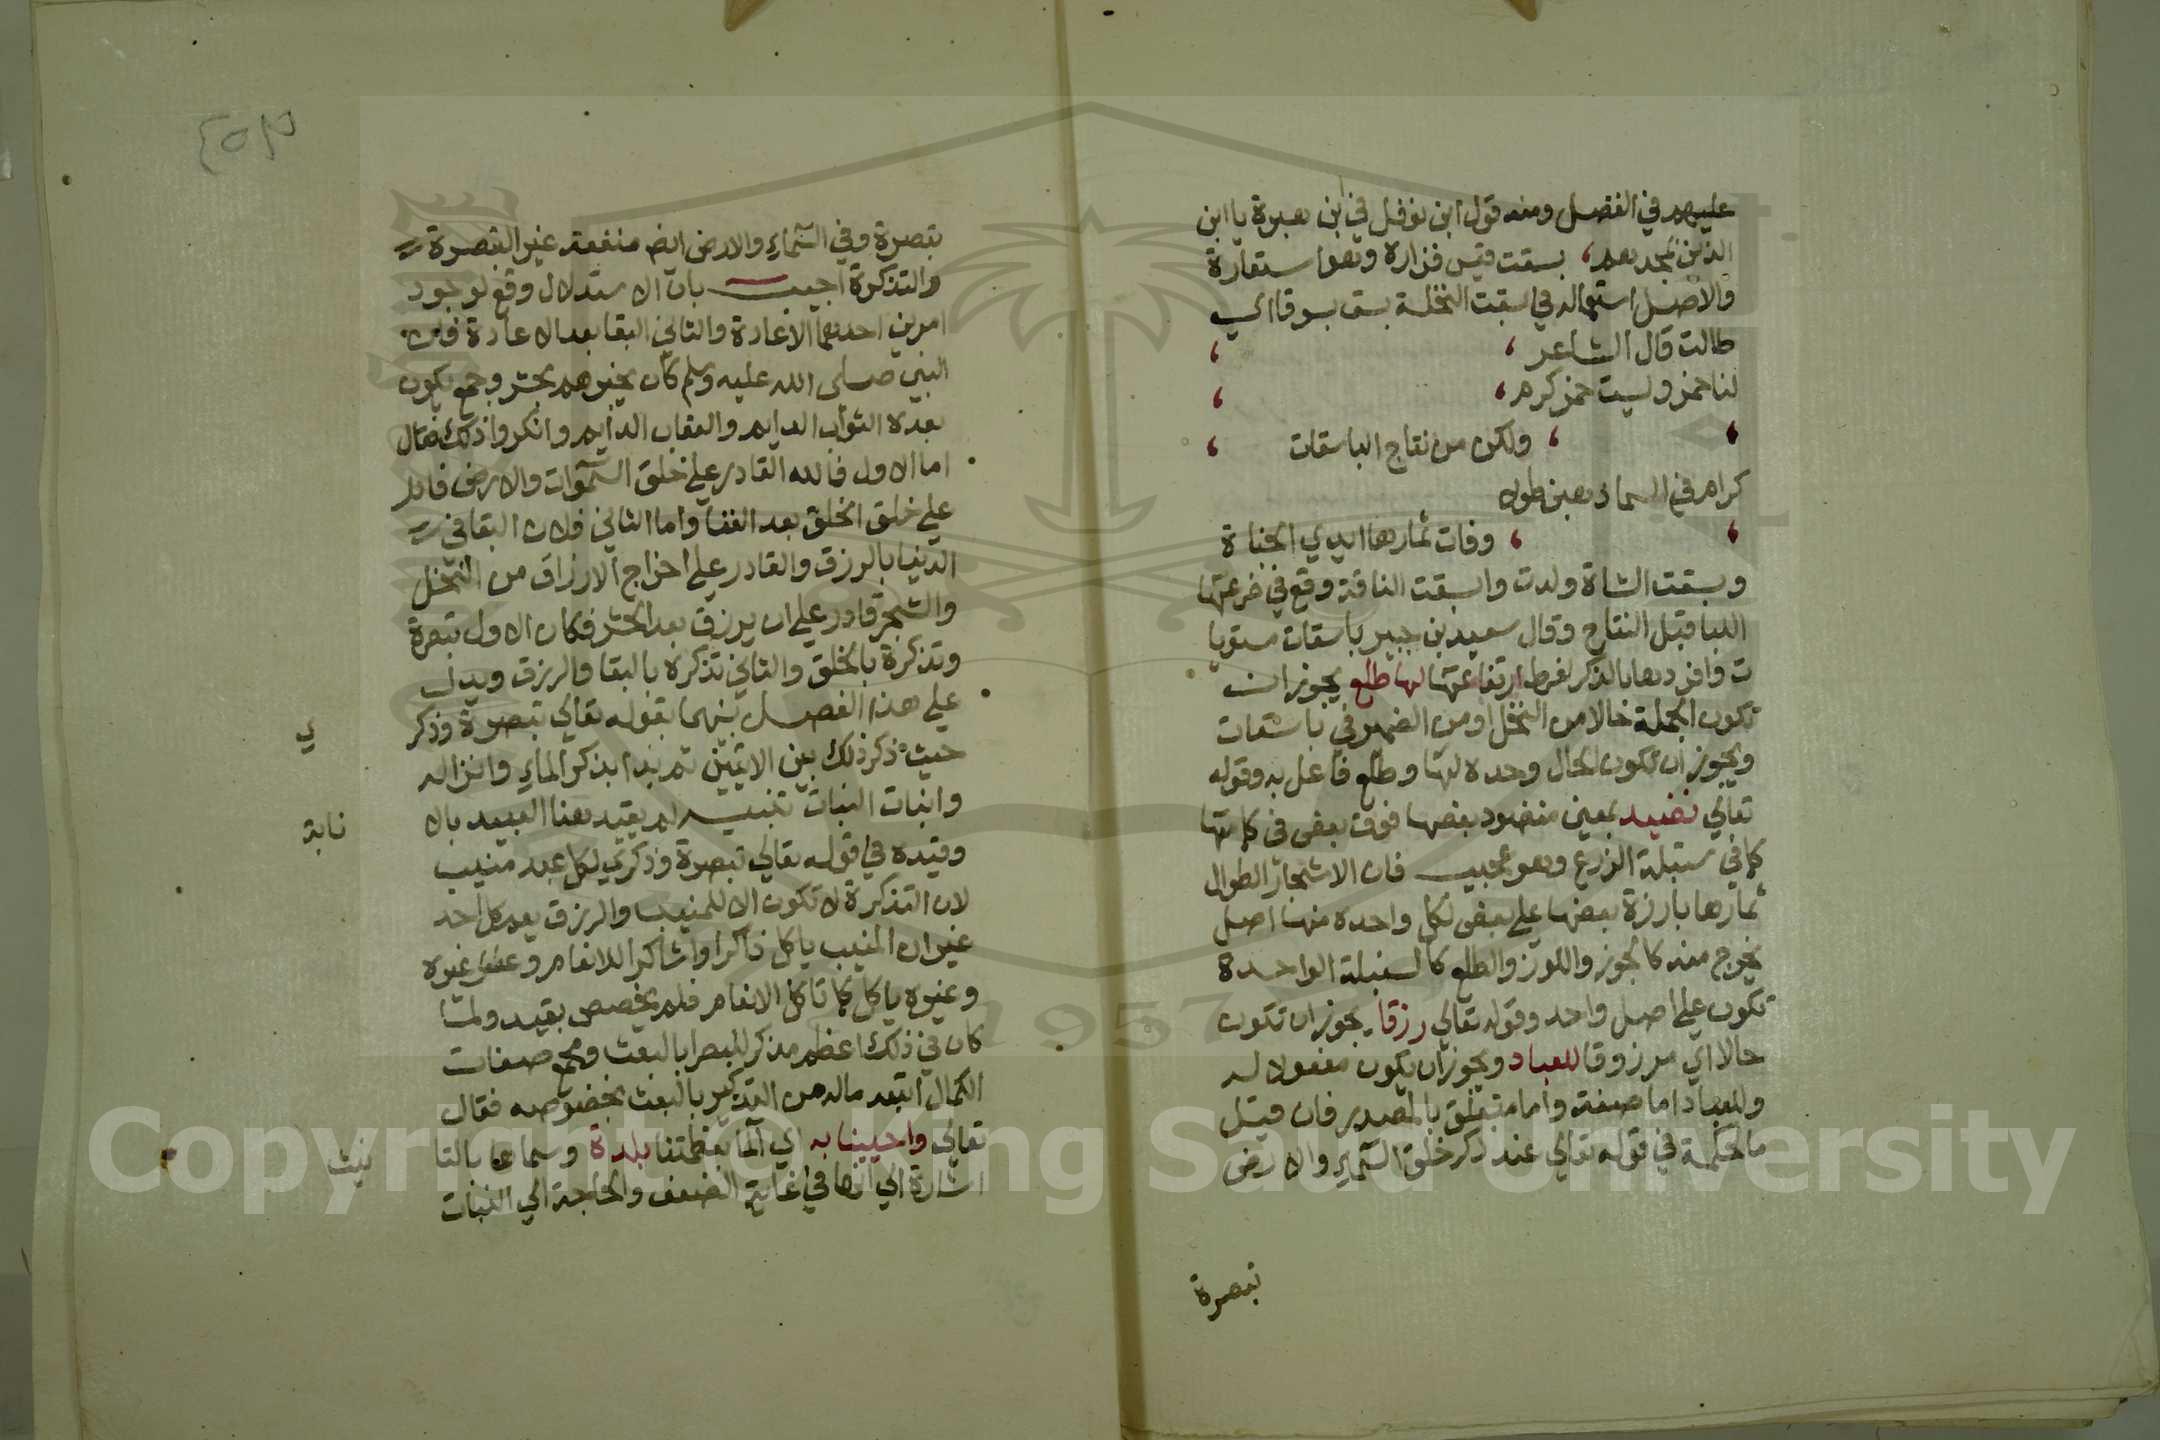 عليهم في الفضل ومنه قول ابن نوفل في ابن هبيرة يا ابن
الذين بمجدهم ، بسقت قيس فزارة وهو استعارة
والاصل استعماله في بسقت النخلة بسق بسوقا اي
طالت قال الشاعر ، ،
لنا خمر وليست خمر كرم ، ،
، ، ولكن من نتاج الباسقات ،
كرام في السماء ذهبن طولا
، ، وفات ثمارها ايدي الجناة
وبسقت الشاة ولدت وابسقت الناقة وقع في ضرعها
اللبا قبل النتاج وقال سعيد بن جبير باسقات مستويا
ت وافردها بالذكر لفرط ارتفاعها لها طلع يجوز ان
تكون الجملة حالا من النخل او من الضمير في باسقات
ويجوز ان تكون الحال وحده لها وطلع فاعل به وقوله
تعالي نضيد بمعني منضود بعضها فوق بعض في كامها
كما في سنبلة الزرع وهو عجيب فان الاشجار الطوال
ثمارها بارزة بعضها علي بعض لكل واحدة منها اصل
يخرج منه كالجوز واللوز والطلع كالسنبلة الواحدة
تكون علي اصل واحد وقوله تعالي رزقا يجوز ان تكون
حالا اي مرزوقا للعباد ويجوز ان يكون مفعولا له
وللعباد اما صفة واما متعلق بالمصدر فان قيل
ما الحكمة في قوله تعالي عند ذكر خلق السماء والارض
تبصرة
تبصرة وفي السماء والارض ايض منفعة غير التبصرة
والتذكرة اجيب بان الاستدلال وقع لوجود
امرين احدهما الاعادة والثاني البقا بعد الاعادة فان
النبي صلى الله عليه وسلم كان يخبرهم بحشر وجمع يكون
بعده الثواب الدايم والعقاب الدايم وانكروا ذلك فقال
اما الاول فالله القادر علي خلق السموات والارض قادر
علي خلق الخلق بعد الفنا واما الثاني فلان البقا في
الدنيا بالرزق والقادر علي اخراج الارزاق من النخل
والشجر قادر علي ان يرزق بعد الحشر فكان الاول تبصرة
وتذكرة بالخلق والثاني تذكرة بالبقا والرزق ويدل
علي هذا الفصل بينهما بقوله تعالي تبصرة وذكر
ي
حيث ذكر ذلك بين الايتين ثم بدا بذكر الماء وانزاله
وانبات النبات تنبيه لم يقيد هنا العبيد بالا
نابة
وقيده في قوله تعالي تبصرة وذكري لكل عبد منيب
لان التذكرة لا تكون الا للمنيب والرزق يعم كل احد
غير ان المنيب ياكل ذاكرا وشاكرا للانعام وغيره
وغيره ياكل كما تاكل الانعام فلم يخصص بقيد ولما
كان في ذلك اعظم مذكر للبصرا بالبعث وبجمع صفات
الكمال اتبعه ماله من التذكير بالبعث بخصوصه فقال
تعالي واحيينا به اي الماء بعظمتنا بلدة وسماها بالتا
نيث
اشارة الي انها في غاية الضعف والحاجة الي النبات
Copyright © King Saud University
1957